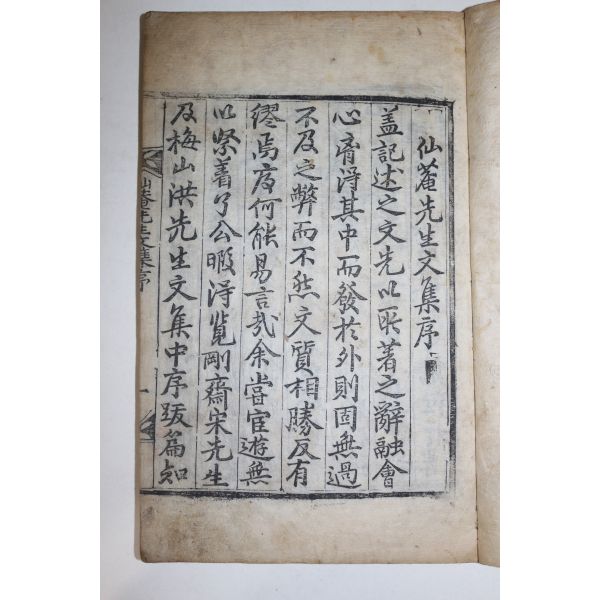 仙菴先生文集序
蓋記述之文先以所著之辭融會
心脊淂其中而發於外則固無過
不及之弊而不然文質相勝反有
繆焉庋何能易言哉余嘗宦遊無
以祭着了公暇淂覽剛齋宋先生
及梅山洪先生文集中序跋篇知
仙菴先生文集序
一